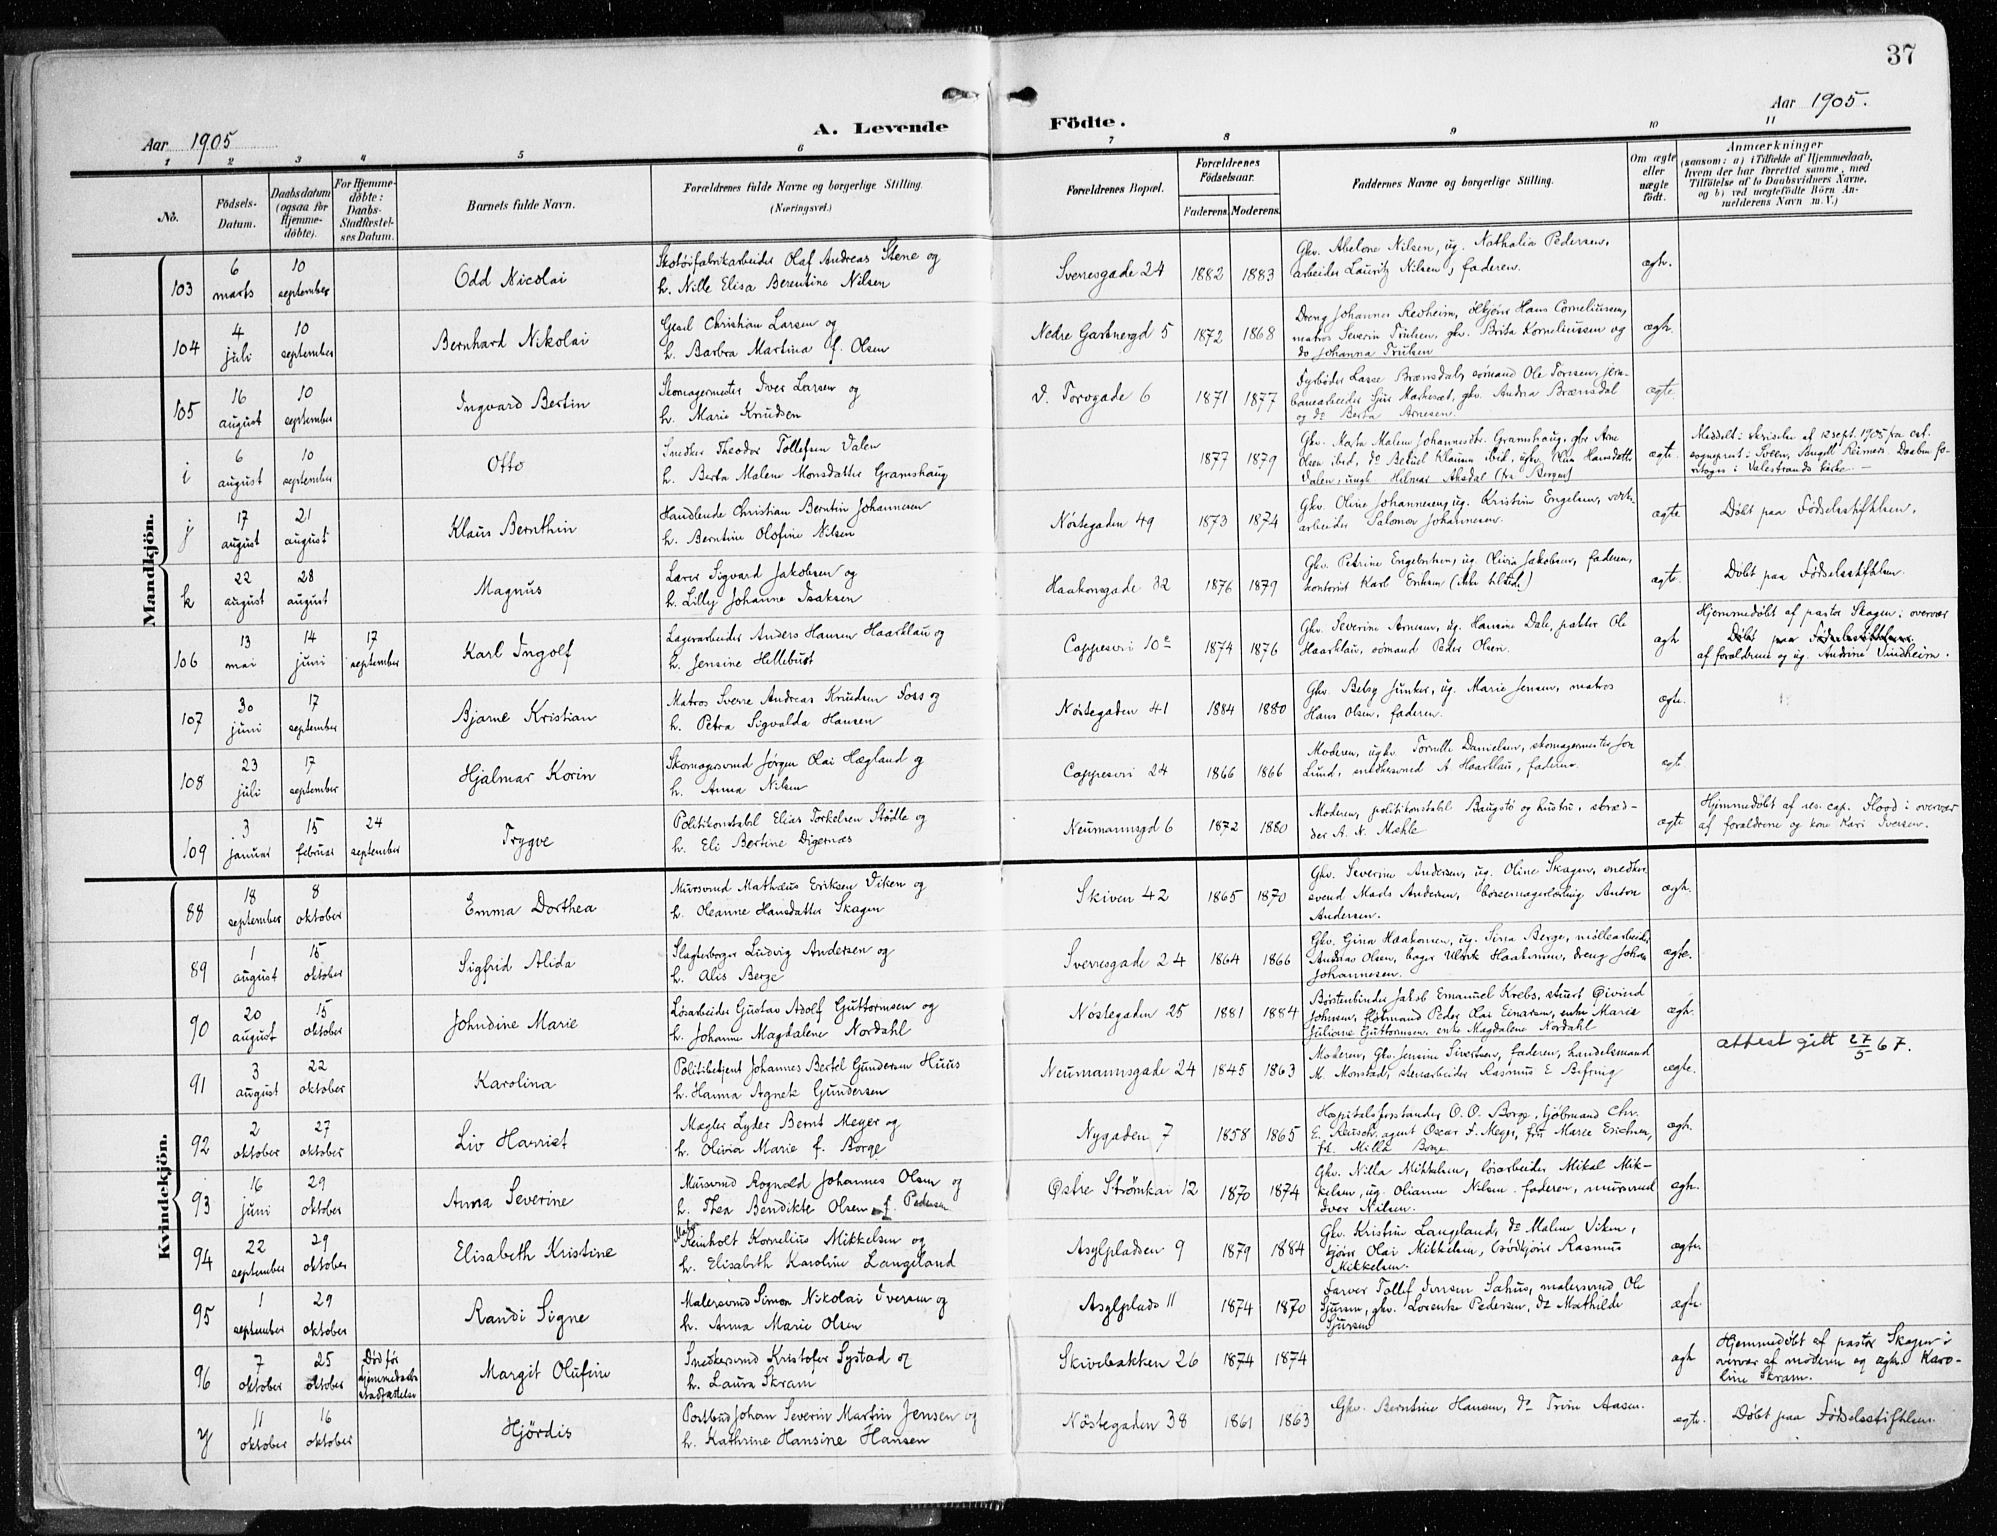 37
Aar 1905
A. Levende Födte.
Aar 1905.
1 2 3 4 5 6 7 8 9 10 11
No.
Fødsels-Datum.
Daabsdatum (ogsaa for Hjemmedøbte).
For Hjemmedøbte: Daabs-Stadfæstelses Datum.
Barnets fulde Navn.
Forældrenes fulde Navne og borgerlige Stilling. (Næringsvei.)
Forældrenes Bopæl.
Forældrenes Fødselsaar.
Faderens. Moderens.
Faddernes Navne og borgerlige Stilling.
Om ægte eller uægte født.
Anmærkninger
(saasom: a) i Tilfælde af Hjemmedaab, hvem der har forrettet samme, med Tilføielse af to Daabsvidners Navne, og b) ved uægtefødte Börn Anmelderens Navn m. V.)
Mandkjön.
103 6 marts 10 september Odd Nicolai Skotøifabrikarbeider Olaf Andreas Stene og
h. Nille Elisa Berentine Nilsen Sverresgade 24 1882 1883 Gkv. Abelone Nilsen, ug. Nathalia Pedersen,
arbeider Lauritz Nilsen, faderen. ægte.
104 4 juli 10 september Bernhard Nikolai Gesel Christian Larsen og
h. Barbra Martina f. Olsen Nedre Gartnergd 5 1872 1868 Dreng Johannes Redheim, ølkjører Hans Corneliussen,
matros Severin Trulsen, gkv. Brita Korneliussen og
do Johanna Trulsen ægte.
105 16 august 10 september Ingvard Bertin Skomagermester Iver Larsen og
h. Marie Knudsen V. Torvgade 6 1871 1877 Fyrbøder Lasse Brænsdal, sømand Ole Torsen, jern-
banearbeider Sjur gkv. Andrea Brænsdal
og do Berta Arnesen. ægte
i 6 august 10 september Otto Snedker Theodor Tollefsen Valen
h. Berta Malene Monsdatter Gramshaug 1877 1879 Gkv. Marta Malene Johannesdtr. Gramshaug, gbr Arne
Olsen ibid, do Betuel Klausen ibid, ugkv. Oline Hansdatter
Valen, ungk Hilmar Aksdal (fra Bergen) ægte. Meddelt i skrivelse af 12 sept. 1905 fra
sogneprest i Daaben fo-
retoges i Valestrands kirke.
j 17 august 21 august Klaus Bernthin Handlende Christian Berntin Johannesen
h. Berntine Olofine Nilsen Nøstegaden 49 1873 1874 Gkv. Oline Johannesen, ug. Kristine Engelsen,
arbeider Salomon Johannesen. ægte Døbt paa Fødselsstiftelsen.
k 22 august 28 august Magnus Lærer Sigvard Jakobsen og
h. Lilly Johanne Isaksen Haakonsgade 32 1876 1879 Gkv. Petrine ug. Olivia Jakobsen, faderen,
kontorist Karl Eriksen (ikke tilstede) ægte. Døbt paa Fødselsstiftelsen.
106 13 mai 14 juni 17 september Karl Ingolf Lagerarbeider Anders Hansen Haarklau og
h. Jensine Hellebust Cappesvei 10 1874 1876 Gkv. Severine Arnesen, ug. Hansine Dale, pakker Ole
Haarklau, sømand Peder Olsen. ægte Hjemmedøbt af pastor Skagen i overvær
Døbt paa Fødselsstiftelsen.
af forældrene og ug. Andrine Vindheim.
107 30 juni 17 september Bjarne Kristian Matros Sverre Andreas Knudsen Foss og
h. Petra Sigvalda Hansen Nøstegaden 41 1884 1880 Gkv. Betsy Junker, ug. Marie Jensen, matros
Hans Olsen, faderen. ægte.
108 23 juli 17 september Hjalmar Korin Skomagersvend Jørgen Olai Hægland og
h. Anna Nilsen Cappesvei 24 1866 1866 Moderen, ugkv Danielsen, skomagermester Jon
Lund, snedkersvend A. Haarklau, faderen. ægte
109 3 januar 15 februar 24 september Trygve Politikonstabel Elias Torkelsen Stødle og
h. Eli Bertine Digernæs Neumannsgd 6 1872 1880 Moderen, politikonstabel Baugstø og hustru, skræd-
der A. N. Mæhle ægte Hjemmedøbt af res. cap. Flood i overvær
af forældrene og kone Kari Iversen.
Kvindekjön.
88 18 september 8 oktober Emma Dorthea Mursvend Mathæus Eriksen Viken og
h. Oleanne Hansdatter Skagen Skiven 42 1865 1870 Gkv. Severine Andersen, ug. Oline Skagen, snedker-
svend Mads Andersen, børsemagerlærling Anton
Andersen. ægte.
89 1 august 15 oktober Sigfrid Alida Slagterborger Ludvig Andersen og
h. Alis Berge Sverresgade 24 1864 1866 Gkv. Gina Haakonsen, ug. Sina Berge, møllearbeider
Andreas Olsen, bager Ulrik Haakonsen, dreng Johan
Johannesen. ægte.
90 20 august 15 oktober Johndine Marie Løsarbeider Gustav Adolf Guttormsen og
h. Johanne Magdalene Nordahl Nøstegaden 25 1881 1884 Børstenbinder Jakob Emanuel Krebs, stuert Øivind
Johnsen, flotmand Peder Olai Einarsen, enke Marie
Juliane Guttormsen, enke Magdalene Nordahl ægte.
91 3 august 22 oktober Karolina Politibetjent Johannes Bertel Gundersen Huus
h. Hanna Agnete Gundersen Neumannsgade 24 1845 1863 Moderen, Gkv. Jensine Sivertsen, faderen, handelsmand
M. Monstad, stenarbeider Rasmus E. ægte. attest gitt 27/5 67.
92 2 oktober 27 oktober Liv Harriet Mægler Lyder Bernt Meyer og
h. Olivia Marie f. Borge Nygaden 7 1858 1865 Hospitalsforstander O. O. Borge, Chr.
E. Reusch, agent Oscar F. Meyer, fru Marie Erichsen,
frk. Milla Borge ægte.
93 16 juni 29 oktober Anna Severine Mursvend Rognald Johannes Olsen og
h. Thea Bendikte Olsen f. Pedersen Østre Strømkai 12 1870 1874 Gkv. Nilla Mikkelsen, løsarbeider Mikal Mik-
kelsen, ug. Olianne Nilsen, faderen, mursvend
Iver Nilsen. ægte.
94 22 september 29 oktober Elisabeth Kristine Reinholt Kornelius Mikkelsen og
h. Elisabeth Karoline Langeland Asylpladsen 9 1879 1884 Gkv. Kristine Langeland, do Malene Viken,
kjører Olai Mikkelsen, brødkjører Rasmus
Mikkelsen. ægte.
95 1 september 29 oktober Randi Signe Malersvend Simon Nikolai Iversen og
h. Anna Marie Olsen Asylplads 11 1874 1870 Farver Tollef Iversen Sahus, malersvend Ole
Sjursen, gkv. Lorentze Pedersen, do Mathilde
Sjursen ægte.
96 7 oktober 25 oktober Død før hjemmedaabs stadfæstelse Margit Olufine Snedkersvend Kristofer Systad og
h. Laura Skram Skivebakken 26 1874 1874 ægte Hjemmedøbt af pastor Skagen i
overvær af moderen og ugkv. Karo-
line Skram.
y 11 oktober 16 oktober Hjørdis Postbud Johan Severin Martin Jensen og
h. Kathrine Hansine Hansen Nøstegaden 38 1861 1863 Gkv. Berntine Hansen, do Trine Aasen. ægte. Døbt paa Fødselsstiftelsen.